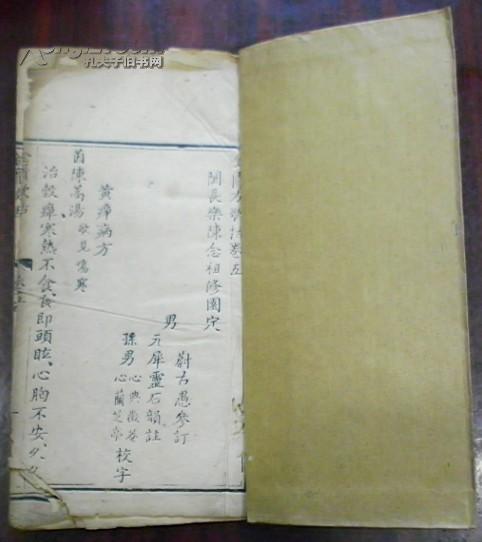 孔夫子旧书网
方歌括卷五
閩長樂陳念祖修園定
男
蔚古愚參訂
元犀靈石韻註
孫男
心典徽菴
心蘭芝亭
校字
黃疸病方
茵陳蒿湯歌見傷寒
治穀疸、寒熱不食、食即頭眩、心胸不安、久久